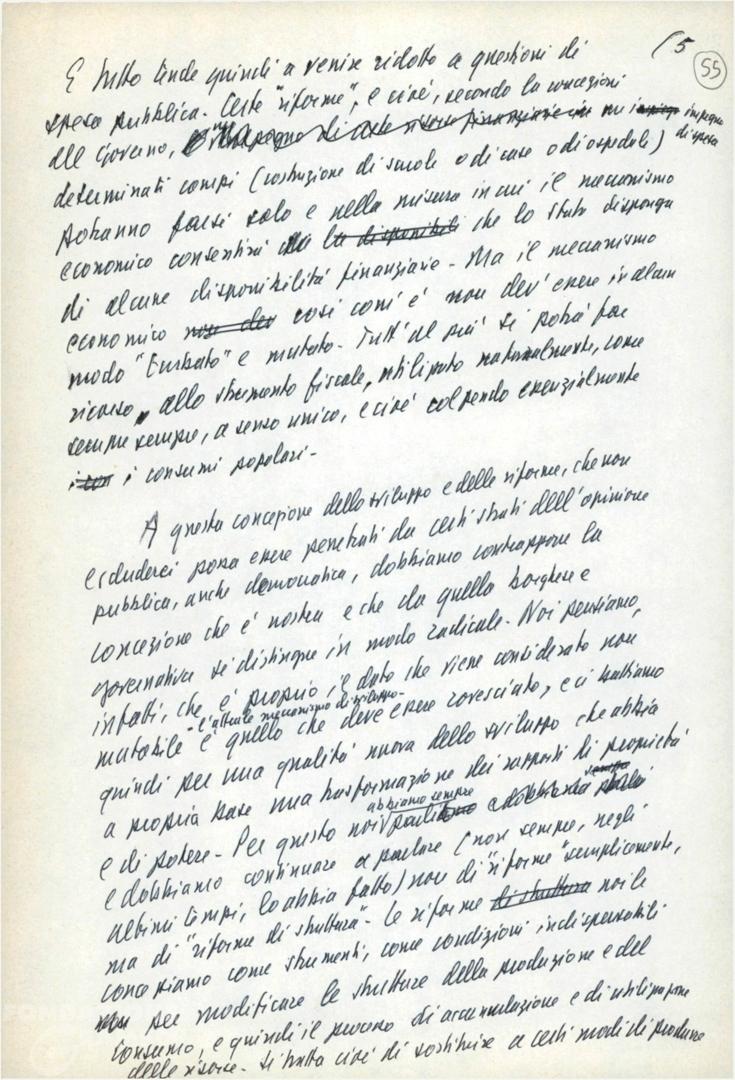 (5
55
E tutto tende quindi a venire ridotto a questioni di
spesa pubblica. Certe "riforme", e cioè, secondo la concezione
del Governo, un impegno
di spesa
determinati campi (costruzione di scuole o di case o di ospedali)
potranno farsi solo e nella misura in cui il meccanismo
economico consentirà la disponibili che lo stato disponga
di alcune disponibilità finanziarie - Ma il meccanismo
economico non dev così com'è non dev'essere in alcun
modo "turbato" e mutato - Tutt'al più si potrà fare
ricorso, allo strumento fiscale, utilizzato naturalmente, come
sempre sempre, a senso unico, e cioè colpendo essenzialmente
i consumi popolari -
A questa concezione dello sviluppo e delle riforme, che non
escluderei possa essere penetrata da certi strati dell'opinione
pubblica, anche democratica, dobbiamo contrapporre la
concezione che è nostra e che da quella borghese e
governativa si distingue in modo radicale - Noi pensiamo,
infatti, che è proprio il dato che viene considerato non
- l'attuale meccanismo di sviluppo -
mutabile è quello che deve essere rovesciato, e ci battiamo
quindi per una qualità nuova dello sviluppo che abbia
a propria base una trasformazione dei rapporti di proprietà
abbiamo sempre
e di potere - Per questo noi
e dobbiamo continuare a parlare (non sempre, negli
ultimi tempi, lo abbia fatto) non di "riforme" semplicemente,
ma di "riforme di struttura" - Le riforme di struttura noi le
concepiamo come strumenti, come condizioni indispensabili
per modificare le strutture della produzione e del
consumo, e quindi il processo di accumulazione e di utilizzazione
delle risorse - Si tratta cioè di sostituire a certi modi di produrre